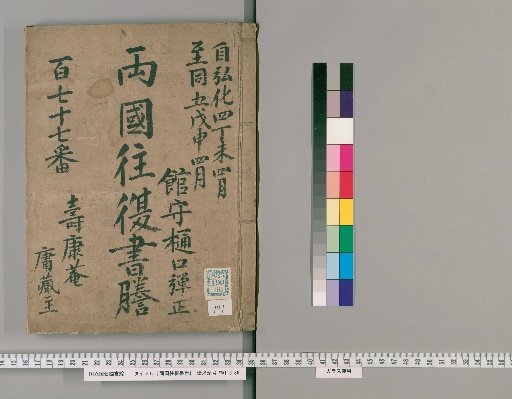 自弘化四丁未四月
至同五戊申四月
館守樋口彈正
両國往復書謄
百七十七番
壽康菴
庸藏主